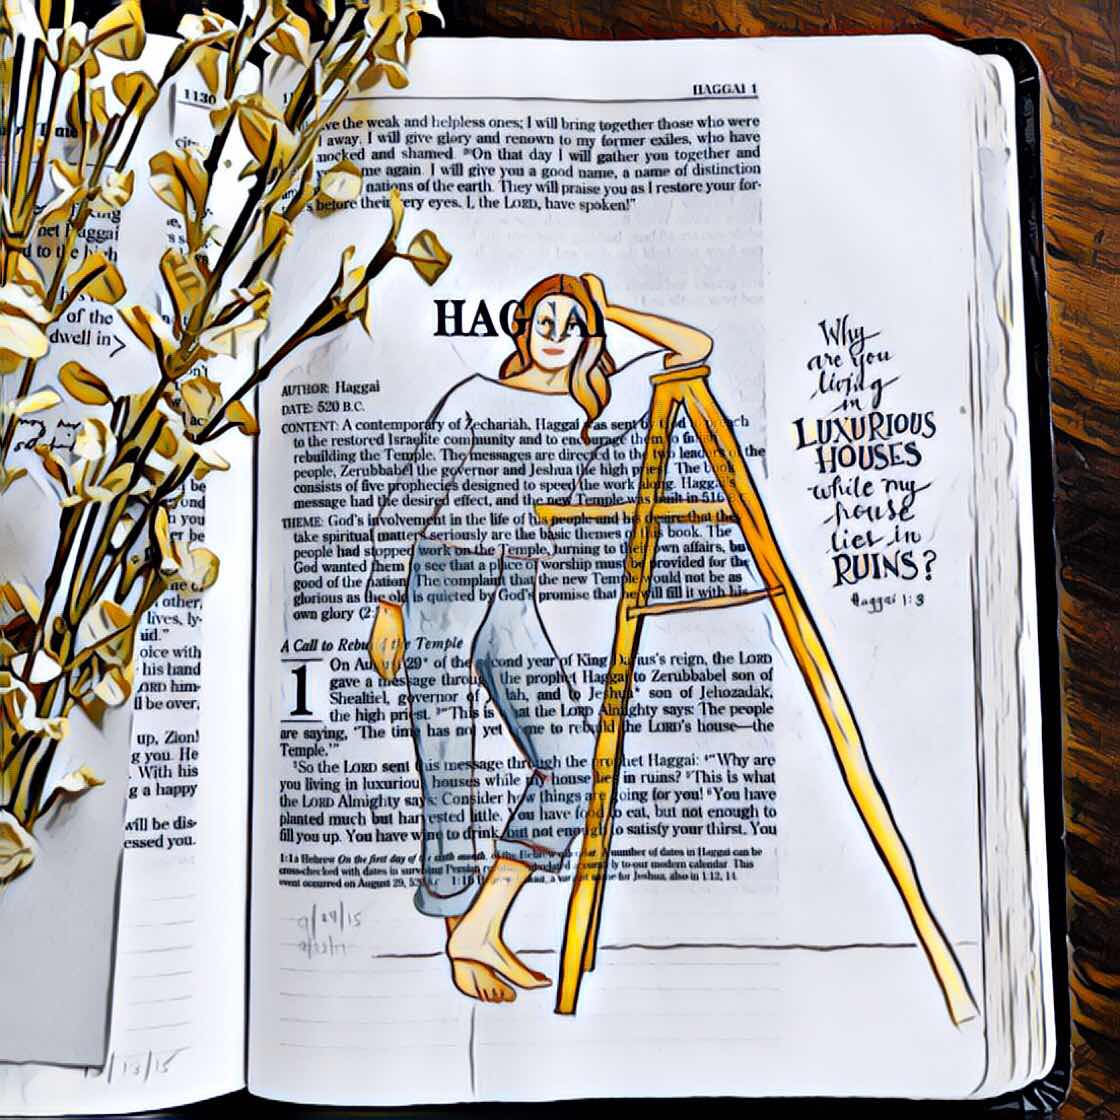 1130
HAGGAI 1
the weak and helpless ones; I will bring together those who were
away. I will give glory and renown to my former exiles, who have
mocked and shamed. 20On that day I will gather you together and
me again. I will give you a good name, a name of distinction
nations of the earth. They will praise you as I restore your for-
before their very eyes. I, the LORD, have spoken!"
HAGGAI
AUTHOR: Haggai
DATE: 520 B.C.
CONTENT: A contemporary of Zechariah, Haggai was sent by God to preach
to the restored Israelite community and to encourage them to finish
rebuilding the Temple. The messages are directed to the two leaders of the
people, Zerubbabel the governor and Jeshua the high priest. The book
consists of five prophecies designed to speed the work along. Haggai's
message had the desired effect, and the new Temple was built in 516 B.C.
THEME: God's involvement in the life of his people and his desire that they
take spiritual matters seriously are the basic themes of this book. The
people had stopped work on the Temple, turning to their own affairs, but
God wanted them to see that a place of worship must be provided for the
good of the nation. The complaint that the new Temple would not be as
glorious as the old is quieted by God's promise that he will fill it with his
own glory (2:
A Call to Rebuild the Temple
1 On August 29* of the second year of King Darius's reign, the LORD
gave a message through the prophet Haggai to Zerubbabel son of
Shealtiel, governor of Judah, and to Jeshua* son of Jehozadak,
the high priest. 2"This is what the LORD Almighty says: The people
are saying, 'The time has not yet come to rebuild the LORD's house—the
Temple.'"
3So the LORD sent this message through the prophet Haggai: 4"Why are
you living in luxurious houses while my house lies in ruins? 5This is what
the LORD Almighty says: Consider how things are going for you! 6You have
planted much but harvested little. You have food to eat, but not enough to
fill you up. You have wine to drink, but not enough to satisfy your thirst. You
1:1a Hebrew On the first day of the sixth month, of the Hebrew calendar. A number of dates in Haggai can be
cross-checked with dates in surviving Persian records and related accurately to our modern calendar. This
event occurred on August 29, 520 B.C. 1:1b name for Jeshua, also in 1:12, 14.
Why
are you
living
in
LUXURIOUS
HOUSES
while my
house
lies in
RUINS?
Haggai 1:3
Haggai
of the
dwell in
be
you
er be
other,
lives, ly-
aid."
oice with
his hand
LORD him-
ll be over,
up, Zion!
g you. He
With his
g a happy
will be dis-
essed you.